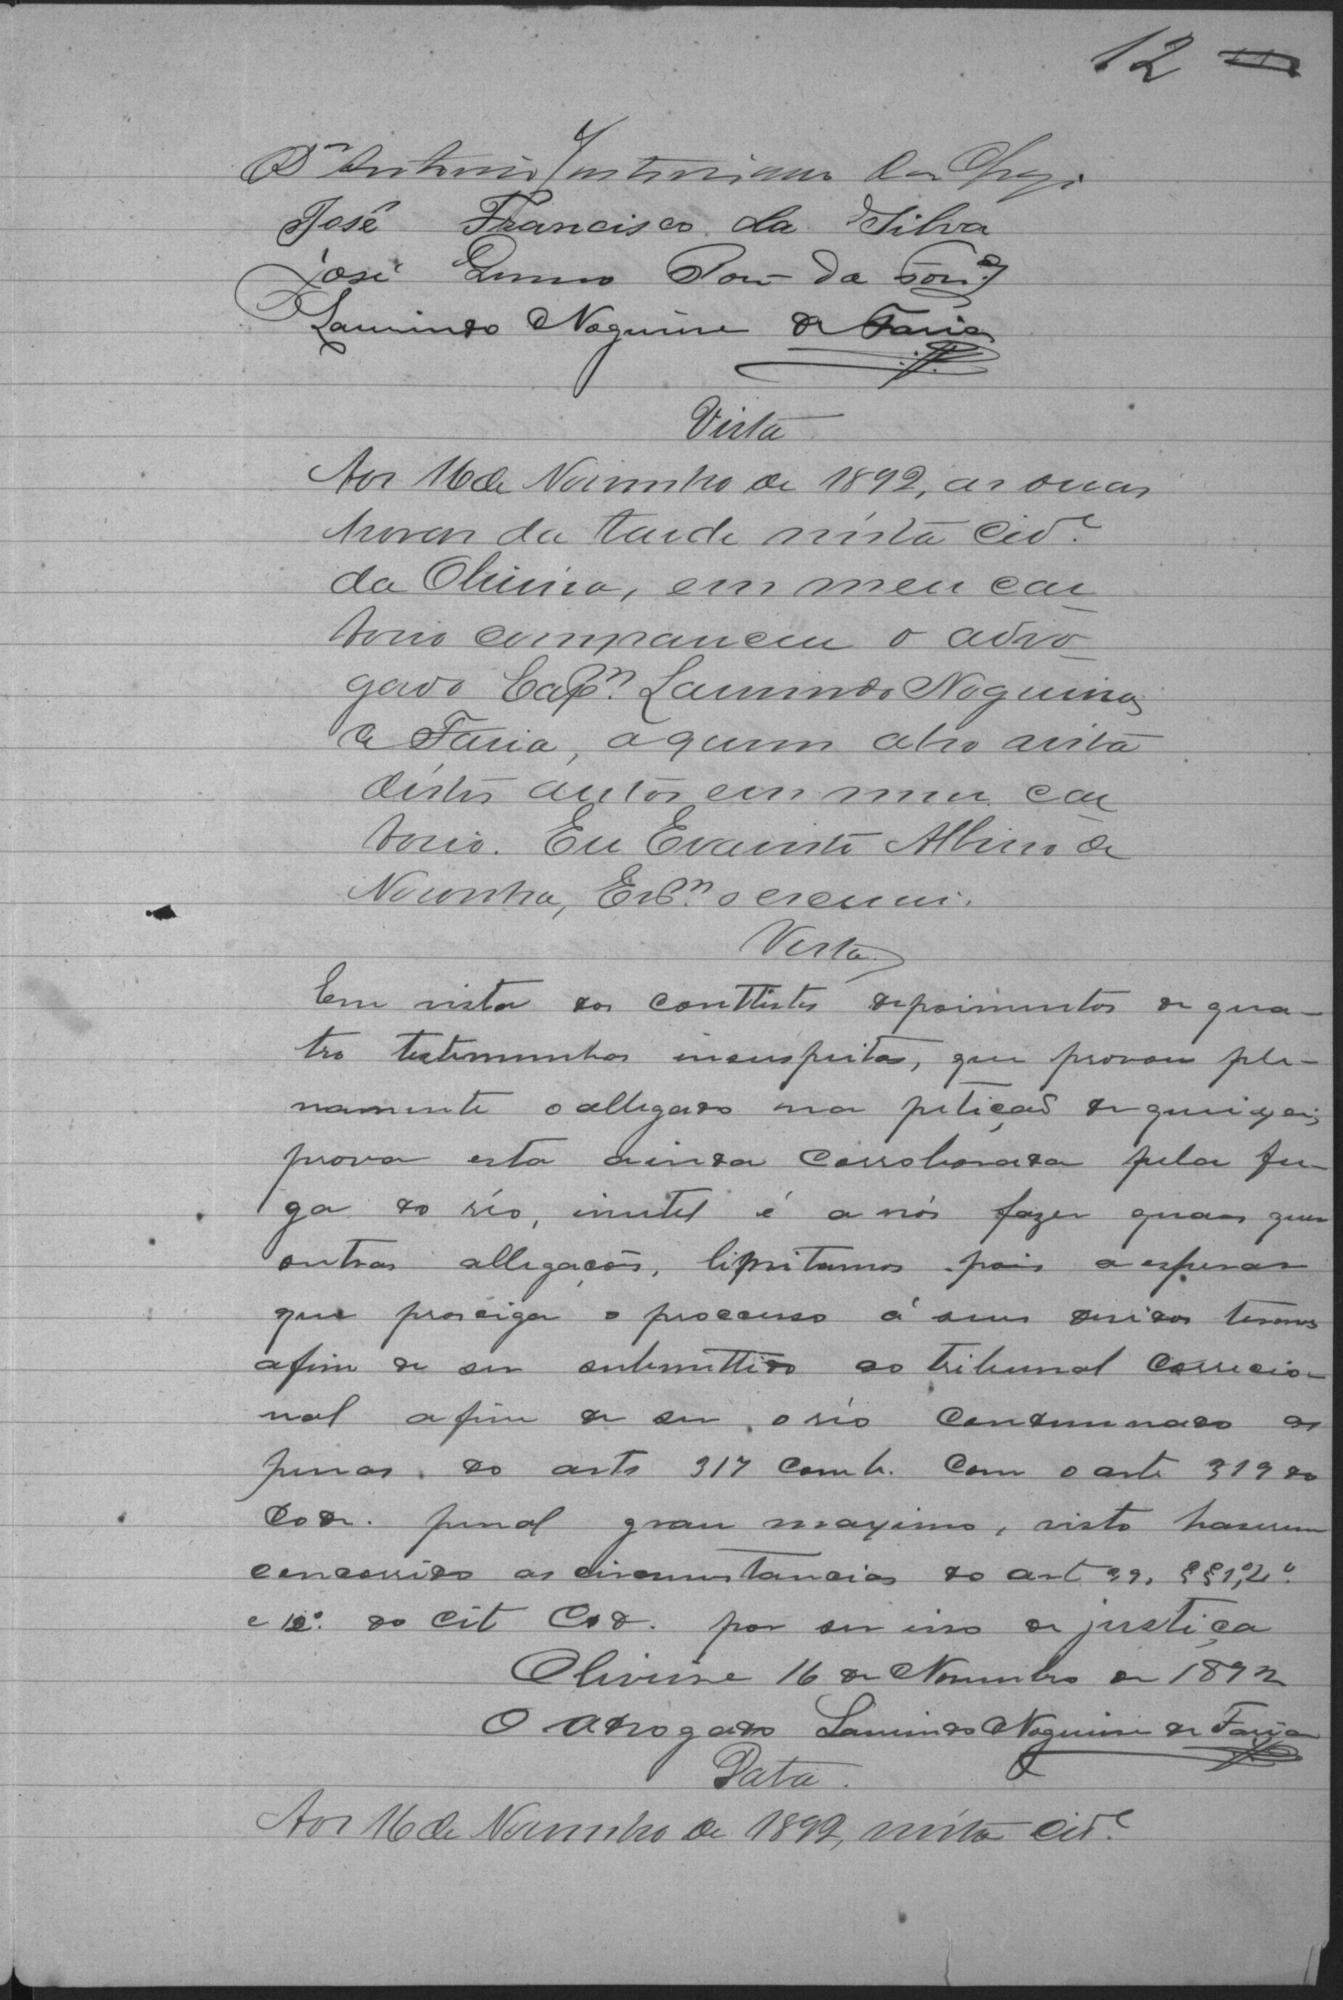 12
Dr Antonio Justiniano das Chagas
José Francisco da Silva
José Lino da
Laurindo Nogueira de Faria
Vista
Aos 16 de Novembro de 1892, as duas
horas da tarde nésta Cid.e
da Oliveira, em meu car
torio compareceu o advo
gado Cap.m Laurindo Nogueira
de Faria, a quem abro vista
déstes autos em meu car
torio. Eu Evaristo Albino de
Noronha, Escr.m o escrevi.
Vista
Em vista dos contéstes depoimentos de qua-
tro testemunhas insuspeitas, que provam ple-
namente o allegado na petiçaõ de queixa e
prova esta ainda corroborada pela fu-
ga do réo, inutil é a nós fazer quaes quer
outras allegaçoẽs, limitamos pois a esperar
que prosiga o processo á seus devidos termos
afim de ser submettido ao tribunal Correcio-
nal afim de ser o réo condemnado as
penas do arts 317 comb. com o arte 319 do
Cod. penal grau maximo, visto haverem
concorrido as circumstancias do art 39, §§ 1, 2º
e 10º do cit Cod. por ser isso de justiça
Oliveira 16 de Novembro de 1892
O advogado Laurindo Nogueira de Faria
Data.
Aos 16 de Novembro de 1892, nésta cid.e